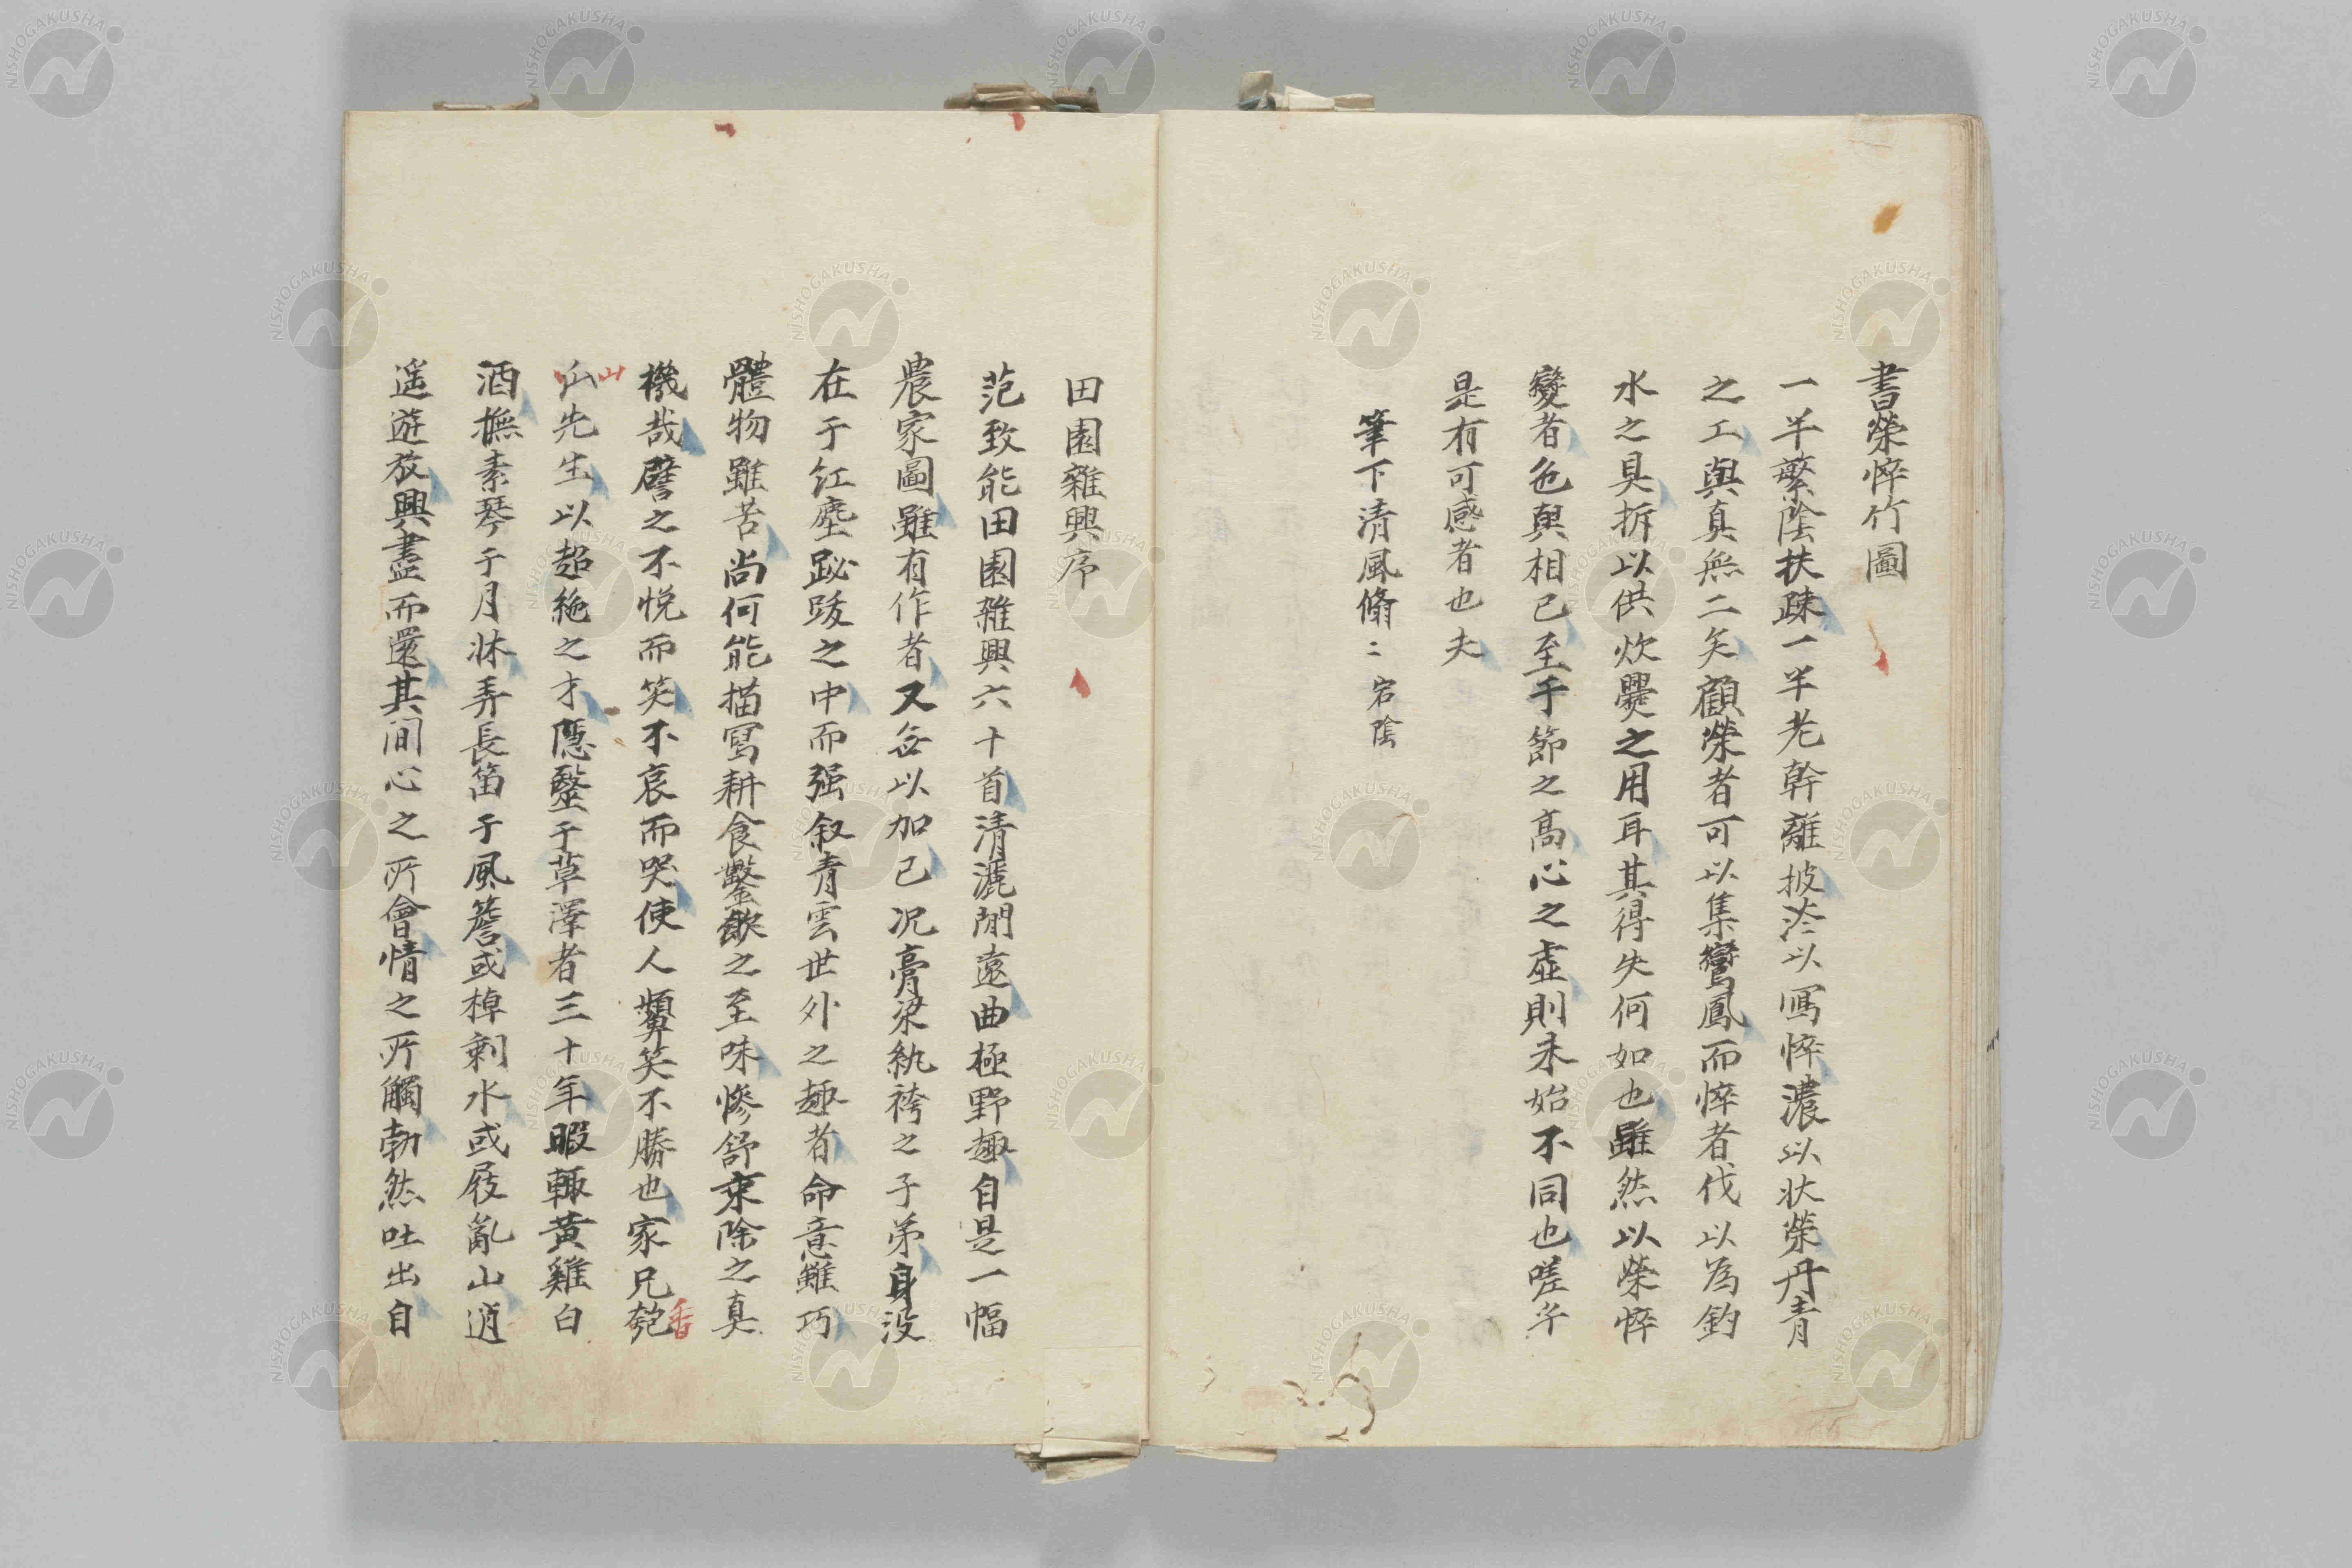 書榮悴竹圖
一半繁陰扶疎一半老幹離披淡以寫悴濃以狀榮丹青
之工與真無二矣顧榮者可以集鸞鳳而悴者伐以為釣
水之具拆以供炊爨之用耳其得失何如也雖然以榮悴
變者色與相已至于節之高心之虛則未始不同也嗟乎
是有可感者也夫
筆下清風翛〻 宕陰
田園雜興序
范致能田園雜興六十首清灑閒遠曲極野趣自是一幅
農家圖雖有作者又無以加已况膏粱紈袴之子弟身没
在于紅塵跋之中而强叙青雲世外之趣者命意雖巧
體物雖苦尚何能描寫耕食鑿飲之至味慘舒乘除之真
機哉譬之不悦而笑不哀而哭使人顰笑不勝也家兄匏
香
山先生以超絶之才隱鑿于草澤者三十年暇輙黄雞白
山
酒撫素琴于月牀弄長笛于風簷或棹剩水或屐亂山逍
遥遊放興盡而還其间心之所會情之所觸勃然吐出自
NISHOGAKUSHA